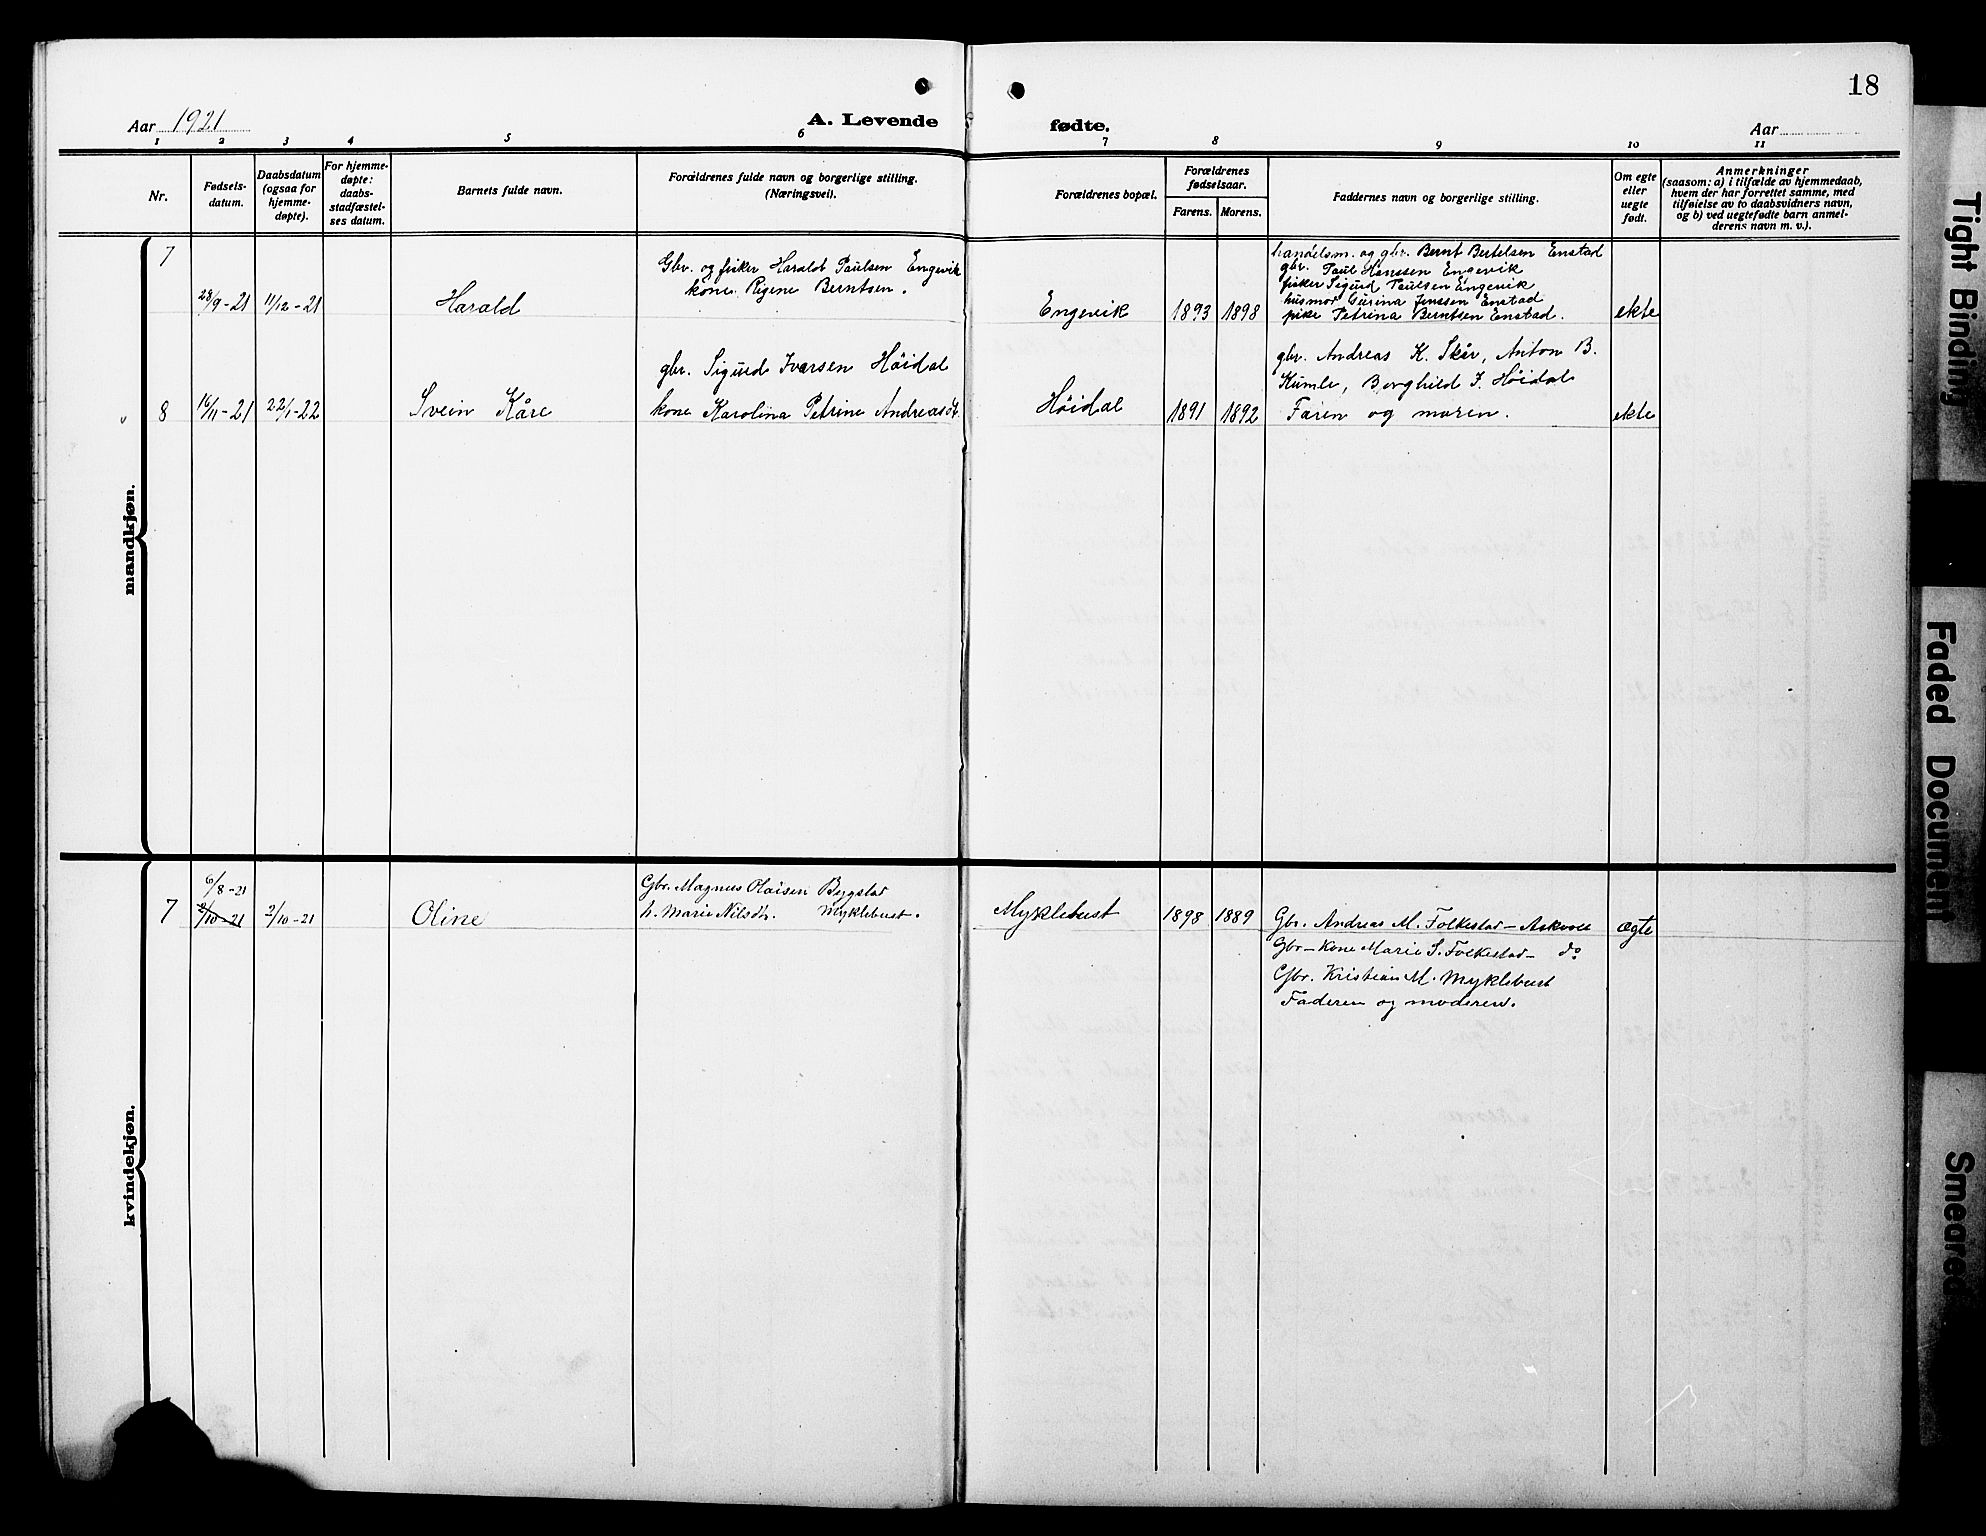 18
Aar 1921
A. Levende fødte.
Aar
1 2 3 4 5 6 7 8 9 10 11
Nr.
Fødsels-
datum.
Daabsdatum
(ogsaa for
hjemme-
døpte).
For hjemme-
døpte:
daabs-
stadfæstel-
ses datum.
Barnets fulde navn.
Forældrenes fulde navn og borgerlige stilling.
(Næringsvei).
Forældrenes bopæl.
Forældrenes
fødselsaar.
Farens. Morens.
Faddernes navn og borgerlige stilling.
Om egte
eller
uegte
født.
Anmerkninger
(saasom: a) i tilfælde av hjemmedaab,
hvem der har forrettet samme, med
tilføielse av to daabsvidners navn,
og b) ved uegtefødte barn anmel-
derens navn m. v.).
mandkjøn.
7
28/9-21 11/12-21
Harald
Gbr. og fisker Harald Paulsen Engevik
kone Regine Berntsen.
Engevik 1893 1898
handelsm. og gbr. Bernt Bertelsen Enstad
gbr. Paul Hanssen Engevik
fisker Sigurd Paulsen Engevik
husmor Gurina Jenssen Enstad
pike Petrina Berntsen Enstad.
ekte
8 16/11-21 22/1-22
Svein Kåre
gbr. Sigurd Ivarsen Höidal
kone Karolina Petrine Andreasdt.
Höidal 1891 1892
gbr. Andreas K. Skår, Anton B.
Kumle, Borghild I. Höidal
Faren og moren.
ekte
kvindekjøn.
7
6/8-21
2/10-21 2/10-21
Oline
Gbr. Magnus Olaisen Bygstad
h. Marie Nilsdtr. Myklebust.
Myklebust 1898 1889
Gbr. Andreas M. Folkestad - Askvoll
Gbr-kone Marie S. Folkestad - do
Gbr. Kristian M. Myklebust
Faderen og moderen.
ægte
Tight Binding
Faded Document
Smeared